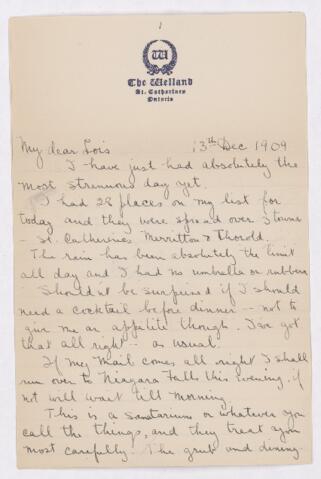 1
W
The Welland
St. Catharines
Ontario
My dear Lois 13th Dec 1909
I have just had absolutely the
most strenuous day yet.
I had 28 places on my list for
today and they were spread over 3 towns
- St. Catherines Merritton & Thorold.
The rain has been absolutely the limit
all day and I had no umbrella or rubbers
Should'nt be surprised if I should
need a cocktail before dinner - not to
give me an appetite though. I've got
that all right - as usual.
If my mail comes all right I shall
run over to Niagara Falls this evening, if
not will wait till morning.
This is a sanitarium or whatever you
call the things, and they treat you
most carefully. The grub and dining-